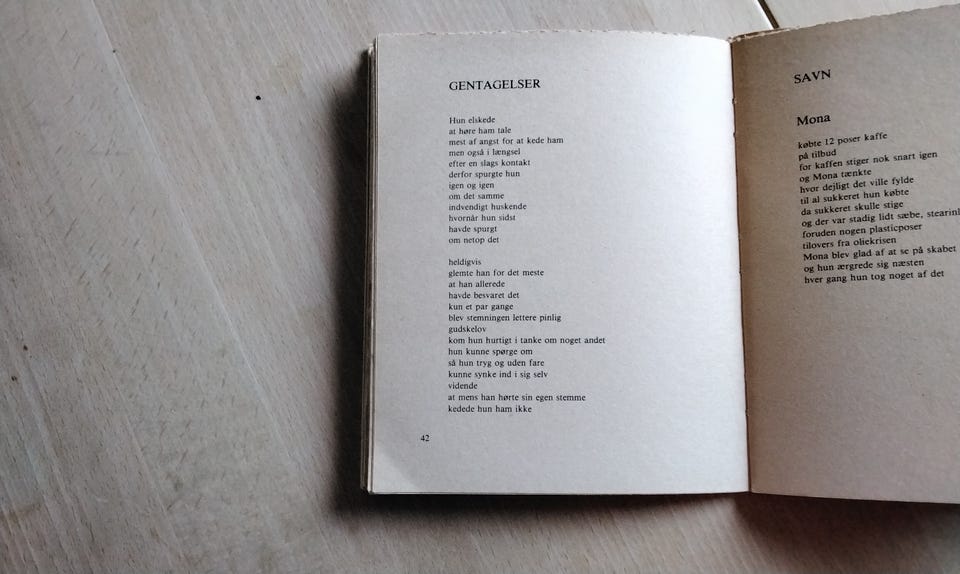 GENTAGELSER
Hun elskede
at høre ham tale
mest af angst for at kede ham
men også i længsel
efter en slags kontakt
derfor spurgte hun
igen og igen
om det samme
indvendigt huskende
hvornår hun sidst
havde spurgt
om netop det
heldigvis
glemte han for det meste
at han allerede
havde besvaret det
kun et par gange
blev stemningen lettere pinlig
gudskelov
kom hun hurtigt i tanke om noget andet
hun kunne spørge om
så hun tryg og uden fare
kunne synke ind i sig selv
vidende
at mens han hørte sin egen stemme
kedede hun ham ikke
42
SAVN
Mona
købte 12 poser kaffe
på tilbud
for kaffen stiger nok snart igen
og Mona tænkte
hvor dejligt det ville fylde
til al sukkeret hun købte
da sukkeret skulle stige
og der var stadig lidt sæbe,
foruden nogen plasticposer
tilovers fra oliekrisen
Mona blev glad af at se på skabet
og hun ærgrede sig næsten
hver gang hun tog noget af det